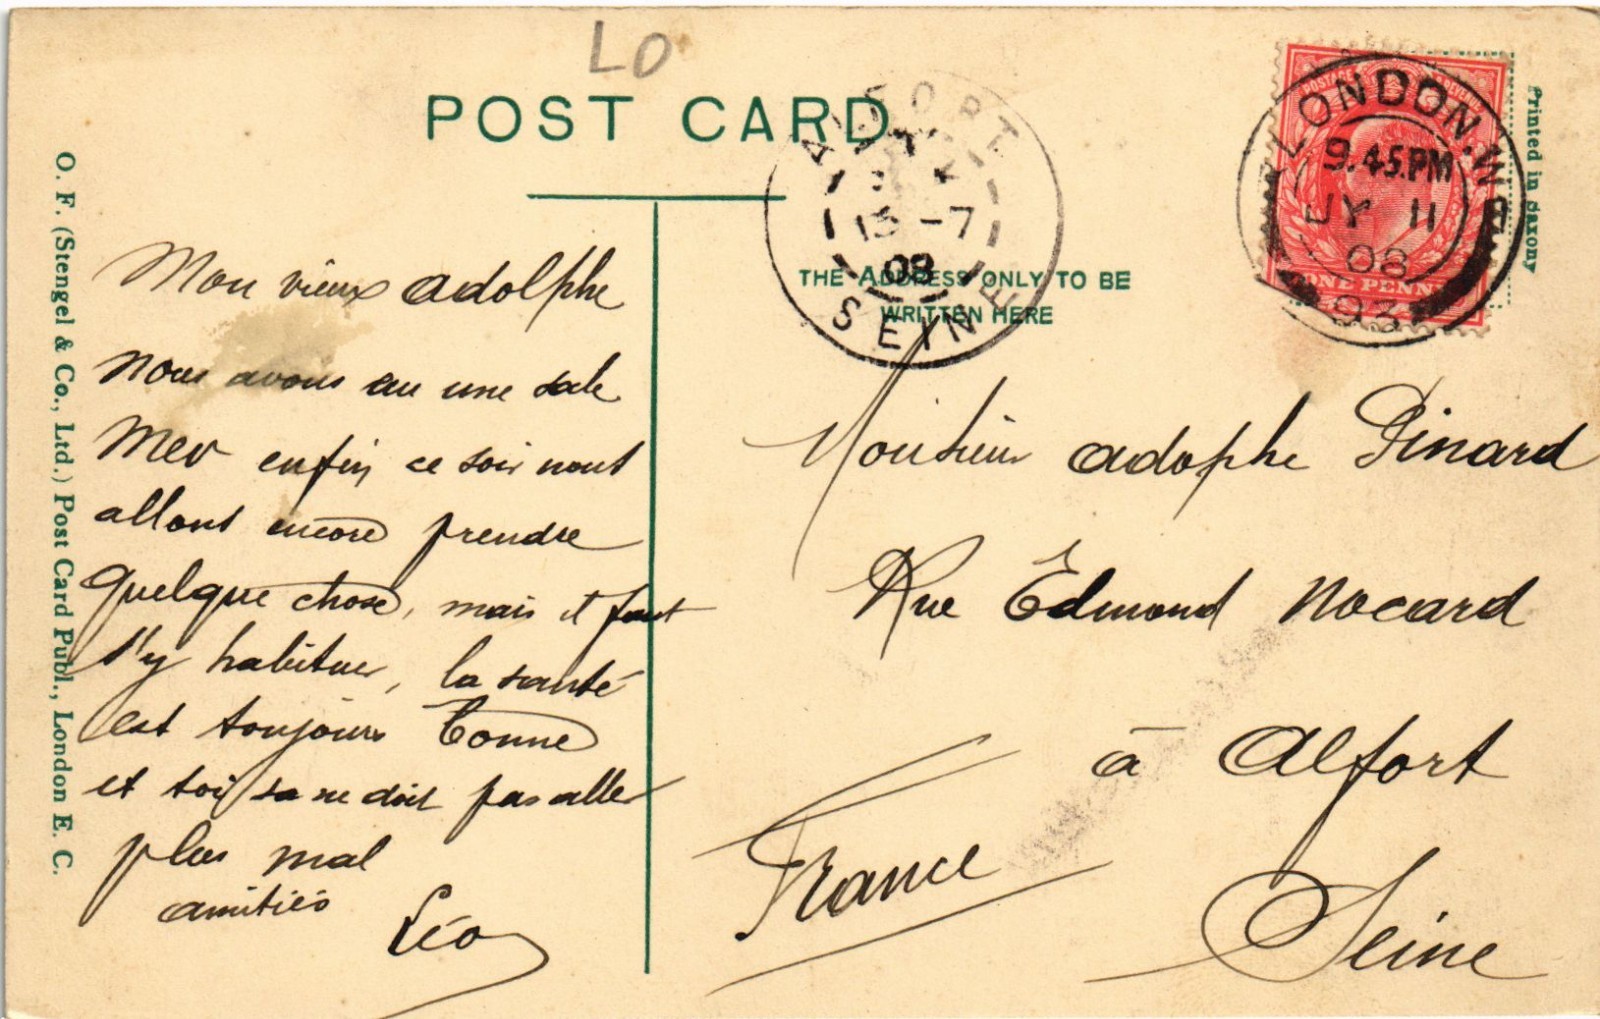 LO
POST CARD
O. F. (Stengel & Co., Ltd.) Post Card Publ., London E. C.
Mon vieux adolphe
nous avons eu une sale
Mer enfin ce soir nous
allons encore prendre
quelque chose, mais il faut
s'y habituer, la santé
est toujours bonne
et toi sa ne doit pas aller
plus mal
amitiés
Léo
ALFORT
13 -7
08
SEINE
THE ADDRESS ONLY TO BE
WRITTEN HERE
POSTAGE REVENUE
ONE PENNY
LONDON. W
9.45.PM
JY 11
08
93
Printed in Saxony
Monsieur adolphe Pinard
Rue Edmond Nocard
à Alfort
Seine
France